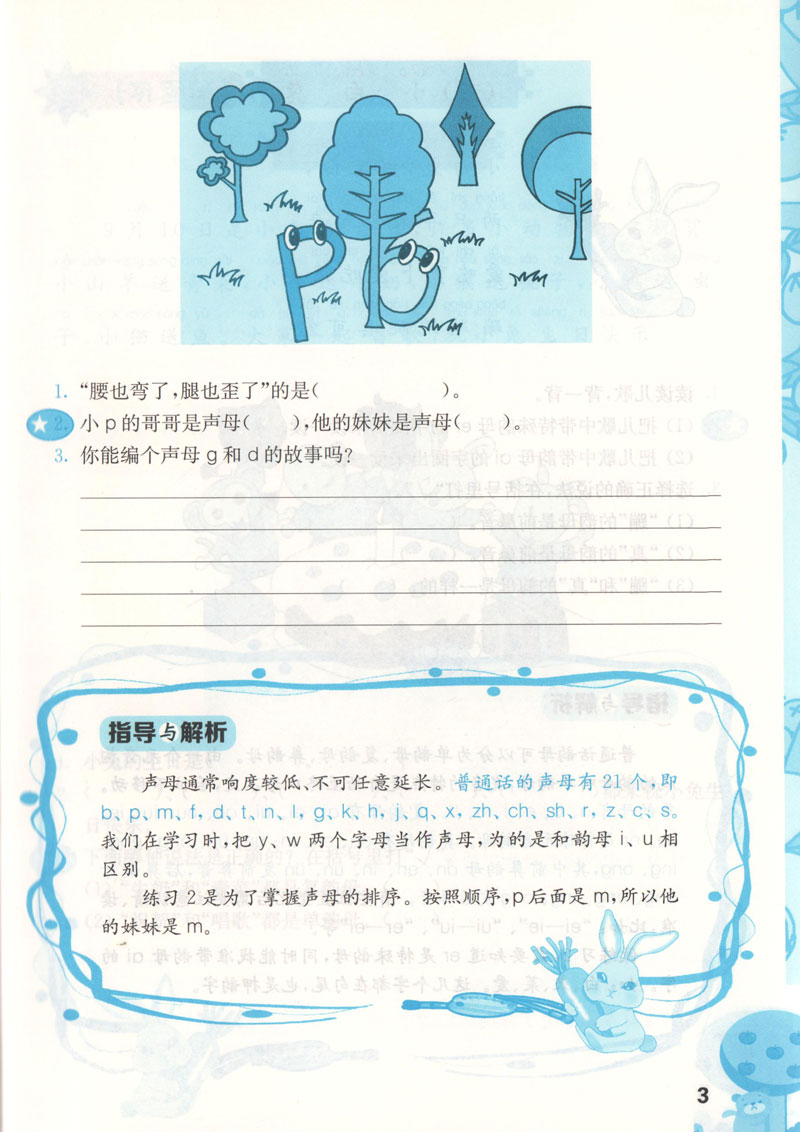 1. “腰也弯了，腿也歪了”的是(　　　　)。
2. 小p的哥哥是声母(　　)，他的妹妹是声母(　　)。
3. 你能编个声母g和d的故事吗？
指导与解析
声母通常响度较低、不可任意延长。普通话的声母有21个，即
b、p、m、f、d、t、n、l、g、k、h、j、q、x、zh、ch、sh、r、z、c、s。
我们在学习时，把y、w两个字母当作声母，为的是和韵母i、u相
区别。
练习2是为了掌握声母的排序。按照顺序，p后面是m，所以他
的妹妹是m。
3